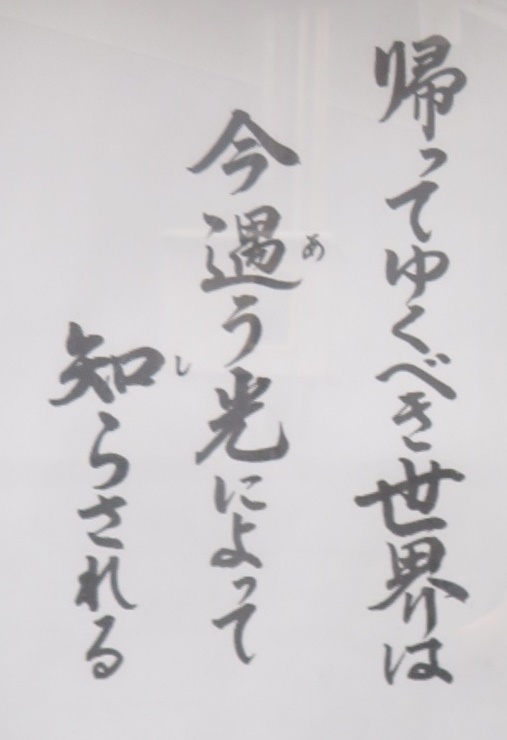 帰ってゆくべき世界は
今遇う光によって
知らされる